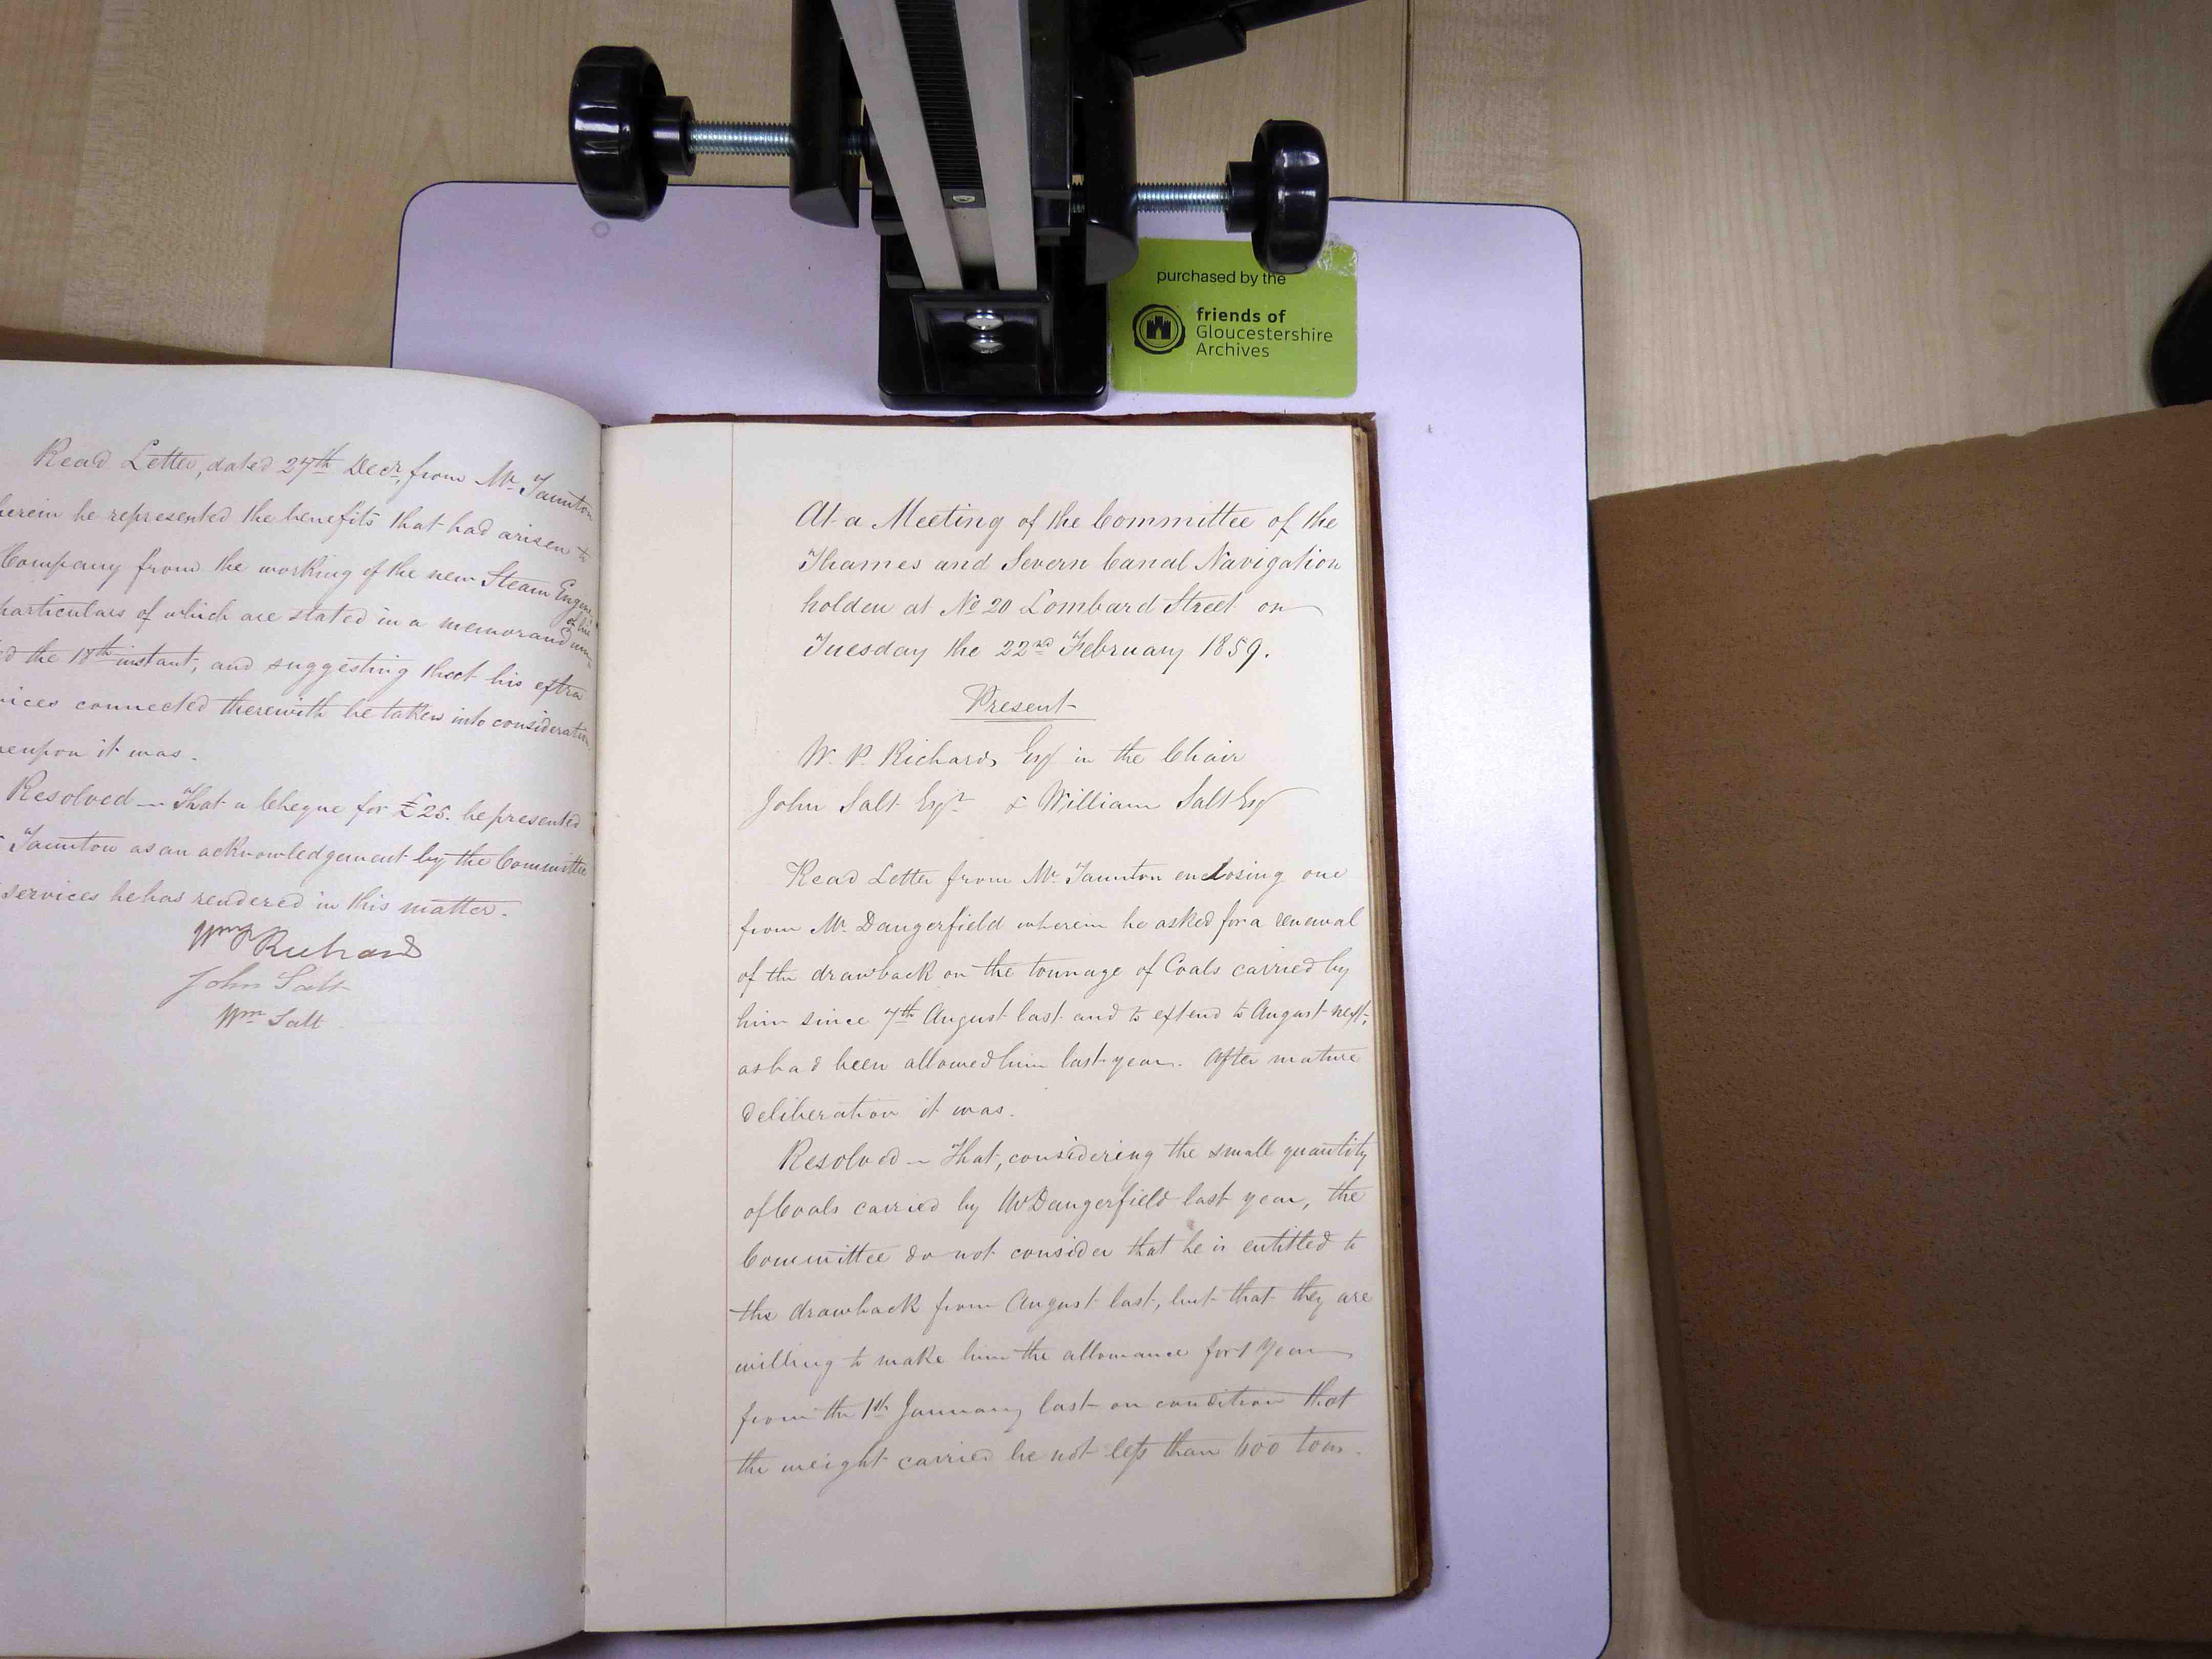 purchased by the
friends of
Gloucestershire
Archives
Read Letter, dated 27th Decr, from Mr Taunton
herein he represented the benefits that had arisen to
Company from the working of the new Steam Engine
particulars of which are stated in a memorandum
of his
d the 18th instant, and suggesting that his extra
vices connected therewith be taken into consideration
reupon it was.
Resolved — That a Cheque for £25. be presented
Taunton as an acknowledgement by the Committee
services he has rendered in this matter.
Wm P Richards
John Salt
Wm Salt
At a Meeting of the Committee of the
Thames and Severn Canal Navigation
holden at No 20 Lombard Street on
Tuesday the 22nd February 1859.
Present
W. P. Richards Esq in the Chair
John Salt Esqr & William Salt Esq
Read Letter from Mr Taunton enclosing one
from Mr Dangerfield wherein he asked for a renewal
of the drawback on the tonnage of Coals carried by
him since 7th August last and to extend to August next,
as had been allowed him last year. After mature
deliberation it was.
Resolved — That, considering the small quantity
of Coals carried by Mr Dangerfield last year, the
Committee do not consider that he is entitled to
the drawback from August last, but that they are
willing to make him the allowance for 1 Year
from the 1st January last on condition that
the weight carried be not less than 600 tons.